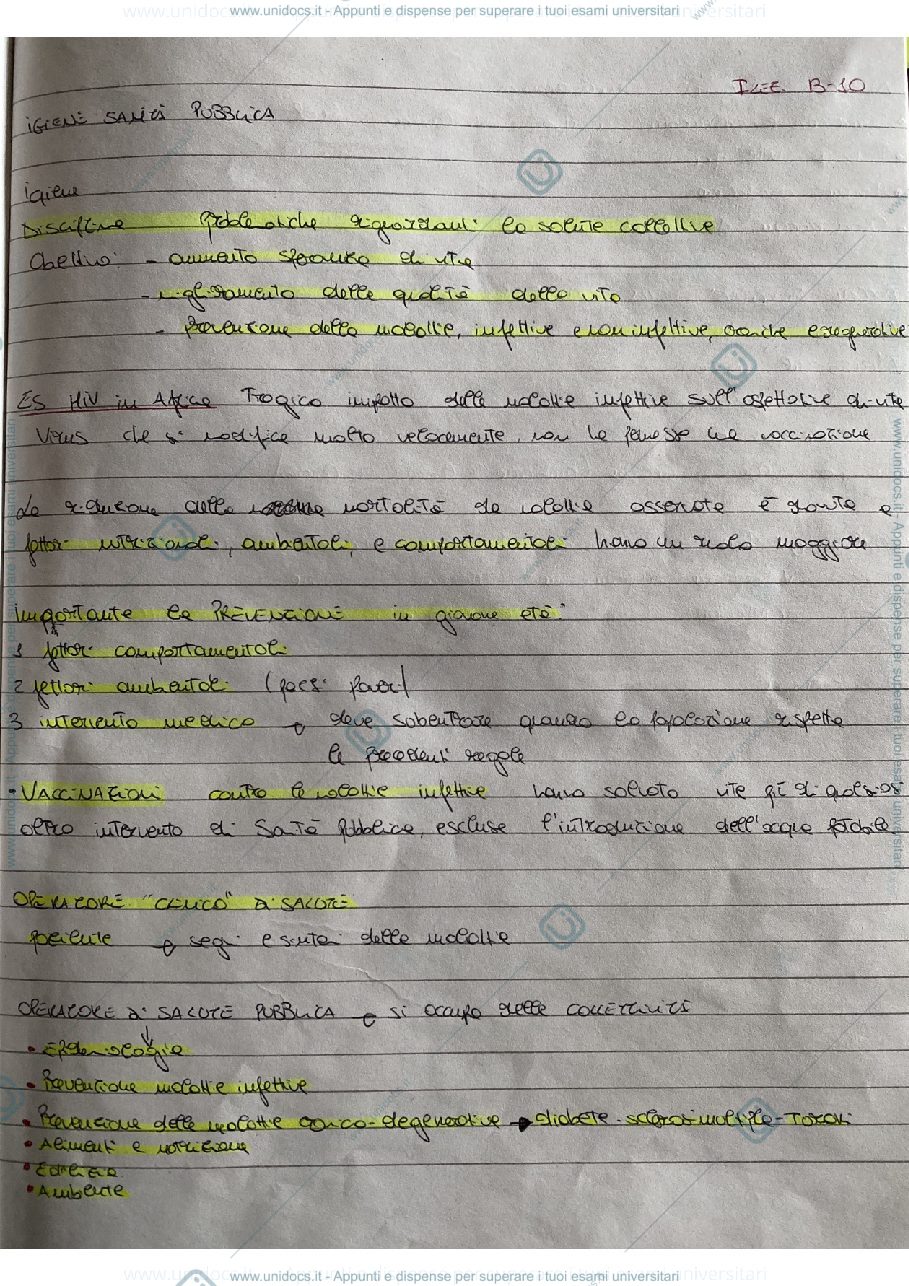 www.unidocs.it - Appunti e dispense per superare i tuoi esami universitari
B-10
IGIENE SANITÀ PUBBLICA
Igiene
Disciplina Problematiche riguardanti la salute collettiva
Obettivo: - aumento speranza di vita
- miglioramento della qualità della vita
- Prevenzione delle malattie, infettive e non infettive, croniche e degenerative
ES HIV in Africa Tragico impatto delle malattie infettive sull'aspettative di vita
Virus che si modifica molto velocemente, non ha permesso una vaccinazione
La riduzione della mortalità da malattie assenate è dovuta a
fattori nutrizionali, ambientali, e comportamentali hanno un ruolo maggiore
importante la PREVENZIONE in giovane età:
1 fattori comportamentali
2 fattori ambientali (paesi poveri)
3 intervento medico → deve subentrare quando la popolazione rispetta
le precedenti regole
• VACCINAZIONI contro le malattie infettive hanno salvato vite più di qualsiasi
altro intervento di Sanità Pubblica, escluse l'introduzione dell'acqua potabile
OPERATORE "CLINICO" DI SALUTE
paziente → segni e sintomi delle malattie
OPERATORE DI SALUTE PUBBLICA → si occupa della COLLETTIVITÀ
• Epidemiologia
• Prevenzione malattie infettive
• Prevenzione delle malattie cronico-degenerative → diabete - sclerosi multipla - Tumori
• Alimenti e nutrizione
• Edilizia
• Ambiente
www.unidocs.it - Appunti e dispense per superare i tuoi esami universitari